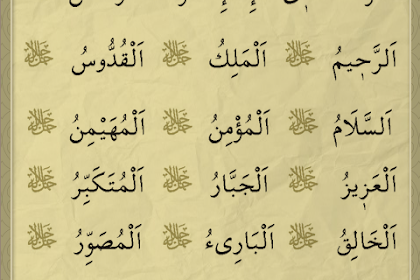 اَلرَّحِيمُ جل جلاله اَلْمَلِكُ جل جلاله اَلْقُدُّوسُ جل جلاله
اَلسَّلَامُ جل جلاله اَلْمُؤْمِنُ جل جلاله اَلْمُهَيْمِنُ جل جلاله
اَلْعَزِيزُ جل جلاله اَلْجَبَّارُ جل جلاله اَلْمُتَكَبِّرُ جل جلاله
اَلْخَالِقُ جل جلاله اَلْبَارِىءُ جل جلاله اَلْمُصَوِّرُ جل جلاله